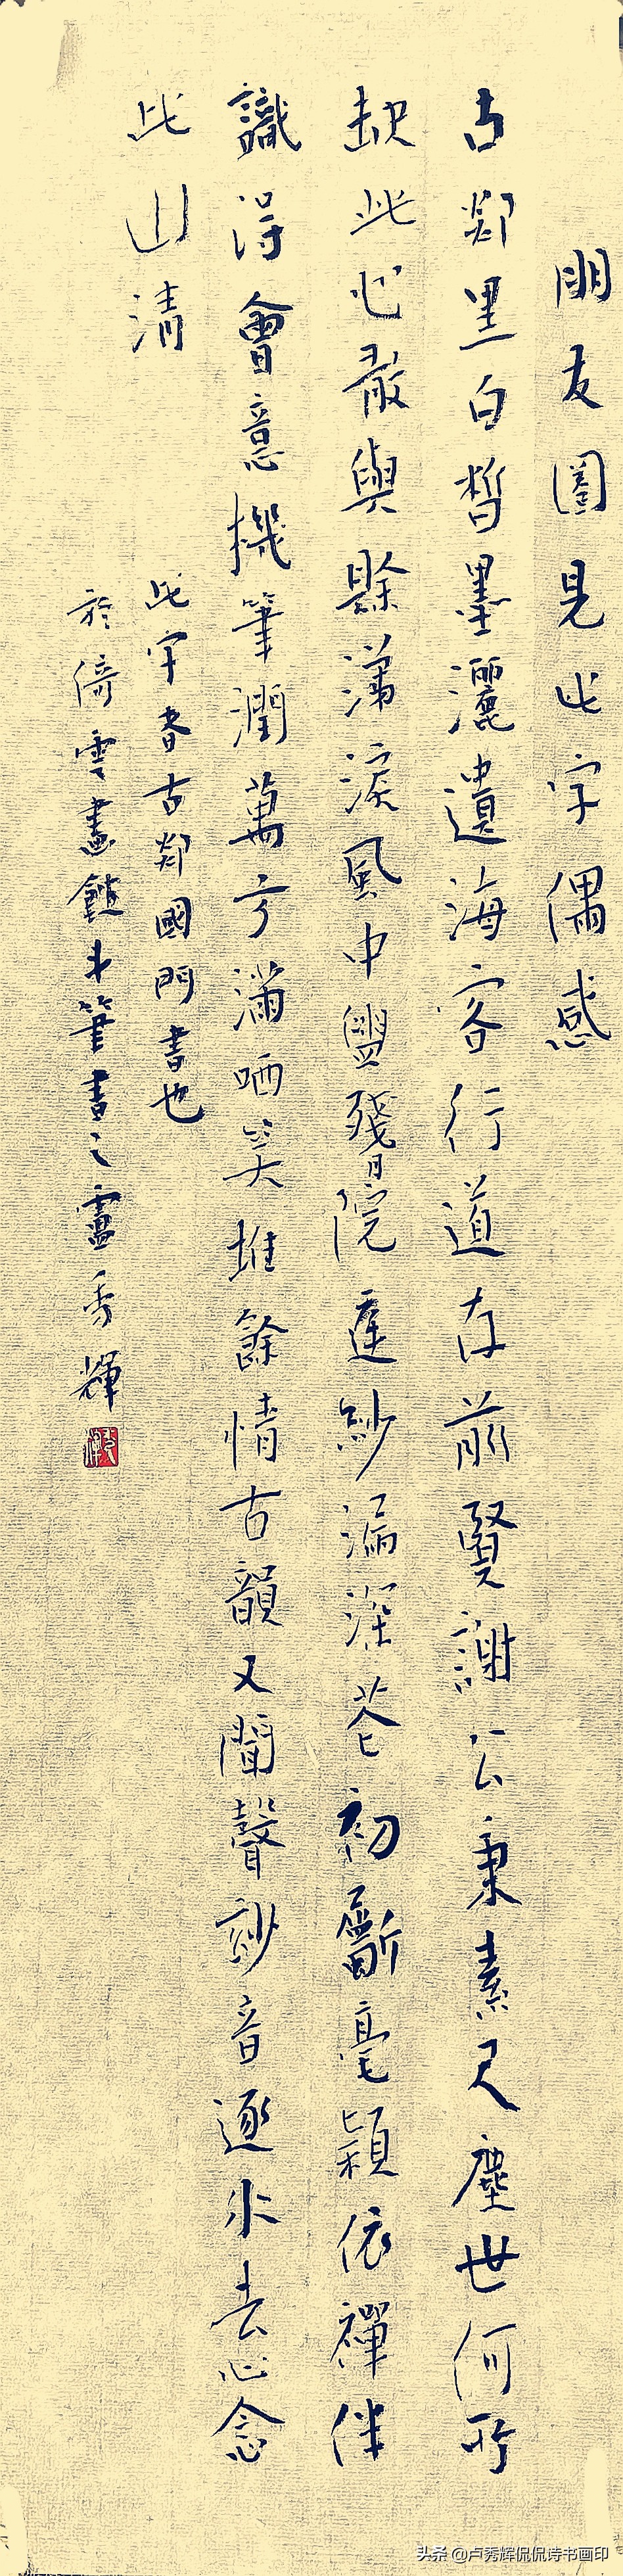 朋友圈見此字偶感
古郯黑白皙墨灑遺海客行道存前賢謝公秉素尺塵世何所
契此心散與賒瀟淚風中盥殘月院蓬紗漏深花初斸毫穎依禪伴
識得會意機筆潤萬方滿哂笑堆餘情古韻又聞聲妙音逐水去心念
此山清
此字者古郯國門書也
於倚雲畫館水筆書之盧秀輝
头条 @卢秀辉侃侃诗书画印